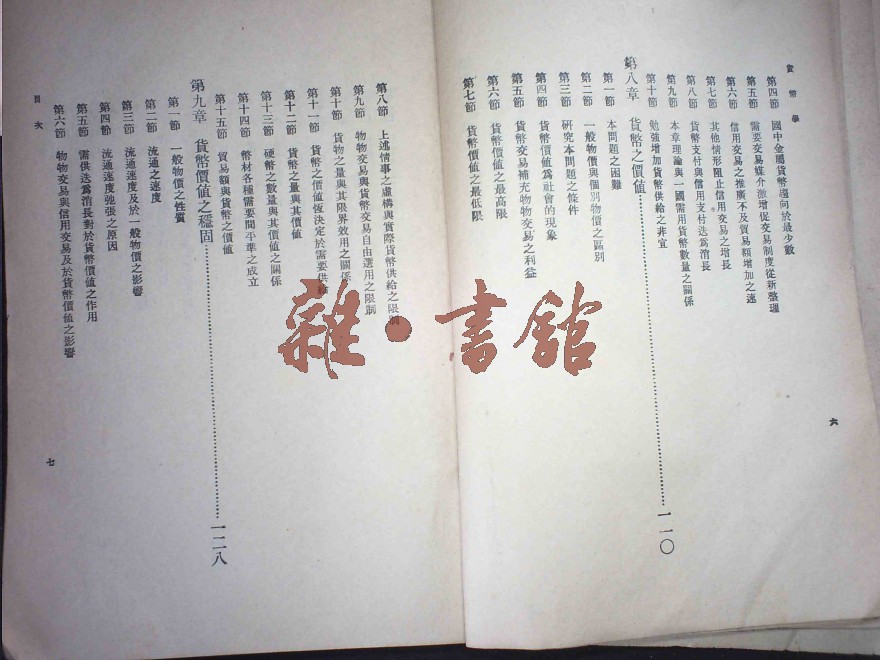 貨幣學
第四節　國中金屬貨幣趨向於最少數
第五節　需要交易媒介激增促交易制度從新整理
第六節　信用交易之推廣不及貿易額增加之速
第七節　其他情形阻止信用交易之增長
第八節　貨幣支付與信用支付迭爲消長
第九節　本章理論與一國需用貨幣數量之關係
第十節　勉強增加貨幣供給之非宜
第八章　貨幣之價値……一一〇
第一節　本問題之困難
第二節　一般物價與個別物價之區別
第三節　硏究本問題之條件
第四節　貨幣價値爲社會的現象
第五節　貨幣交易補充物物交易之利益
第六節　貨幣價値之最高限
第七節　貨幣價値之最低限
六
第八節　上述情事之虛構與實際貨幣供給之限制
第九節　物物交易與貨幣交易自由選用之限制
第十節　貨物之量與其限界效用之關係
第十一節　貨幣之價値恆決定於需要供給
第十二節　貨幣之量與其價値
第十三節　硬幣之數量與其價値之關係
第十四節　幣材各種需要間平準之成立
第十五節　貿易額與貨幣之價値
第九章　貨幣價値之穩固……一二八
第一節　一般物價之性質
第二節　流通之速度
第三節　流通速度及於一般物價之影響
第四節　流通速度弛張之原因
第五節　需供迭爲消長對於貨幣價値之作用
第六節　物物交易與信用交易及於貨幣價値之影響
目次
七
雜·書館